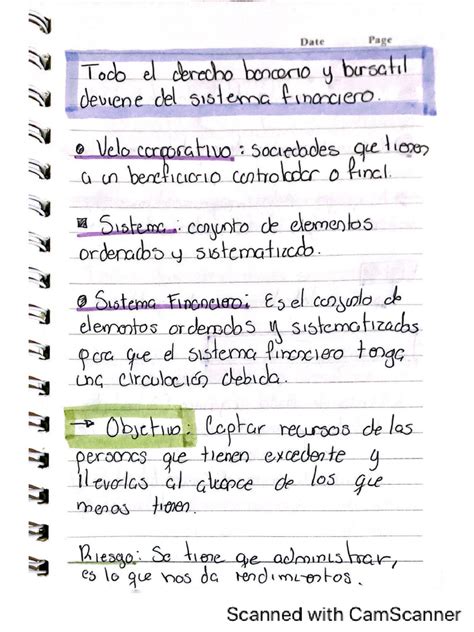 Date Page
Todo el derecho bancario y bursatil
deviene del sistema financiero.
Velo corporativo: sociedades que tienen
a un beneficiario controlador o final.
Sistema: conjunto de elementos
ordenados y sistematizado.
Sistema Financiero: Es el conjunto de
elementos ordenados y sistematizados
para que el sistema financiero tenga
una circulación debida.
→ Objetivo: Captar recursos de las
personas que tienen excedente y
llevarlas al alcance de los que
menos tienen.
Riesgo: Se tiene que administrar,
es lo que nos da rendimientos.
Scanned with CamScanner